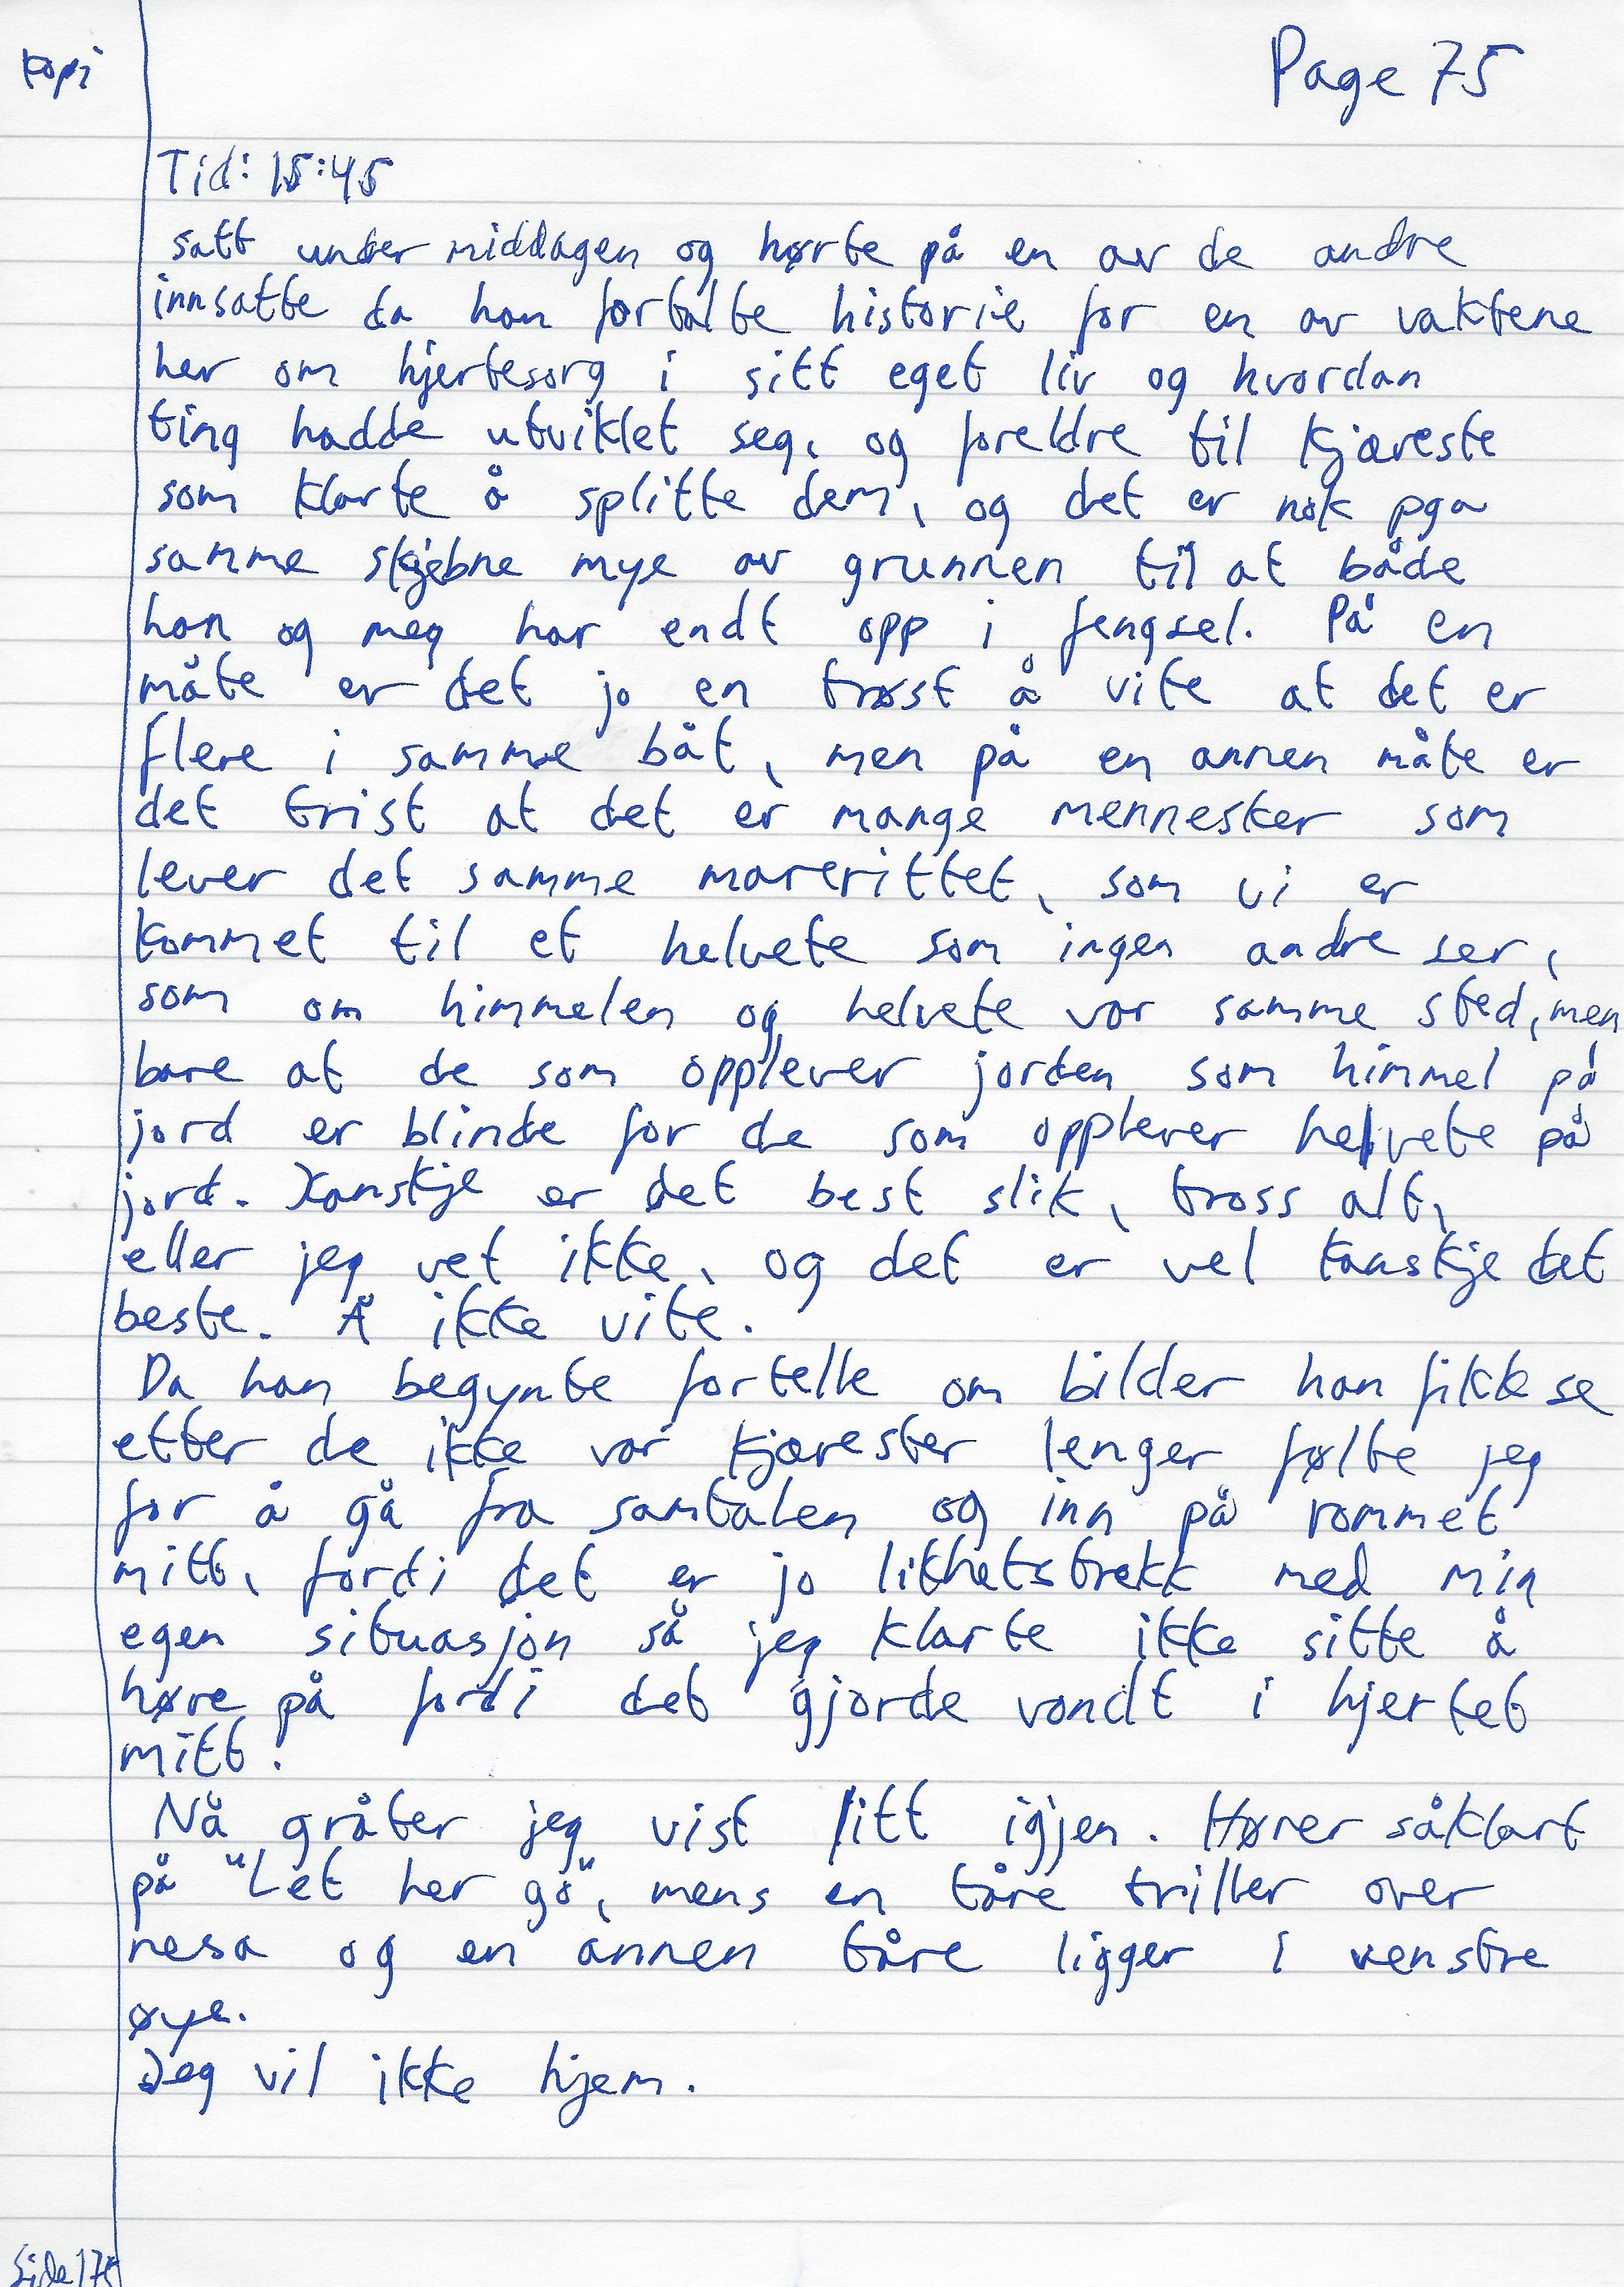 kopi
Page 75
Tid: 15:45
satt under middagen og hørte på en av de andre
innsatte da han fortalte historie for en av vaktene
her om hjertesorg i sitt eget liv og hvordan
ting hadde utviklet seg, og foreldre til kjæreste
som klarte å splitte dem, og det er nok pga
samme skjebne mye av grunnen til at både
han og meg har endt opp i fengsel. På en
måte er det jo en trøst å vite at det er
flere i samme båt, men på en annen måte er
det trist at det er mange mennesker som
lever det samme marerittet, som vi er
kommet til et helvete som ingen andre ser,
som om himmelen og helvete var samme sted, men
bare at de som opplever jorden som himmel på
jord er blinde for de som opplever helvete på
jord. Kanskje er det best slik, tross alt,
eller jeg vet ikke, og det er vel kanskje det
beste. Å ikke vite.
Da han begynte fortelle om bilder han fikk se
etter de ikke var kjærester lenger følte jeg
for å gå fra samtalen og inn på rommet
mitt, fordi det er jo likhetstrekk med min
egen situasjon så jeg klarte ikke sitte å
høre på fordi det gjorde vondt i hjertet
mitt.
Nå gråter jeg vist litt igjen. Hører såklart
på "Let her go", mens en tåre triller over
nesa og en annen tåre ligger i venstre
øye.
Jeg vil ikke hjem.
Side